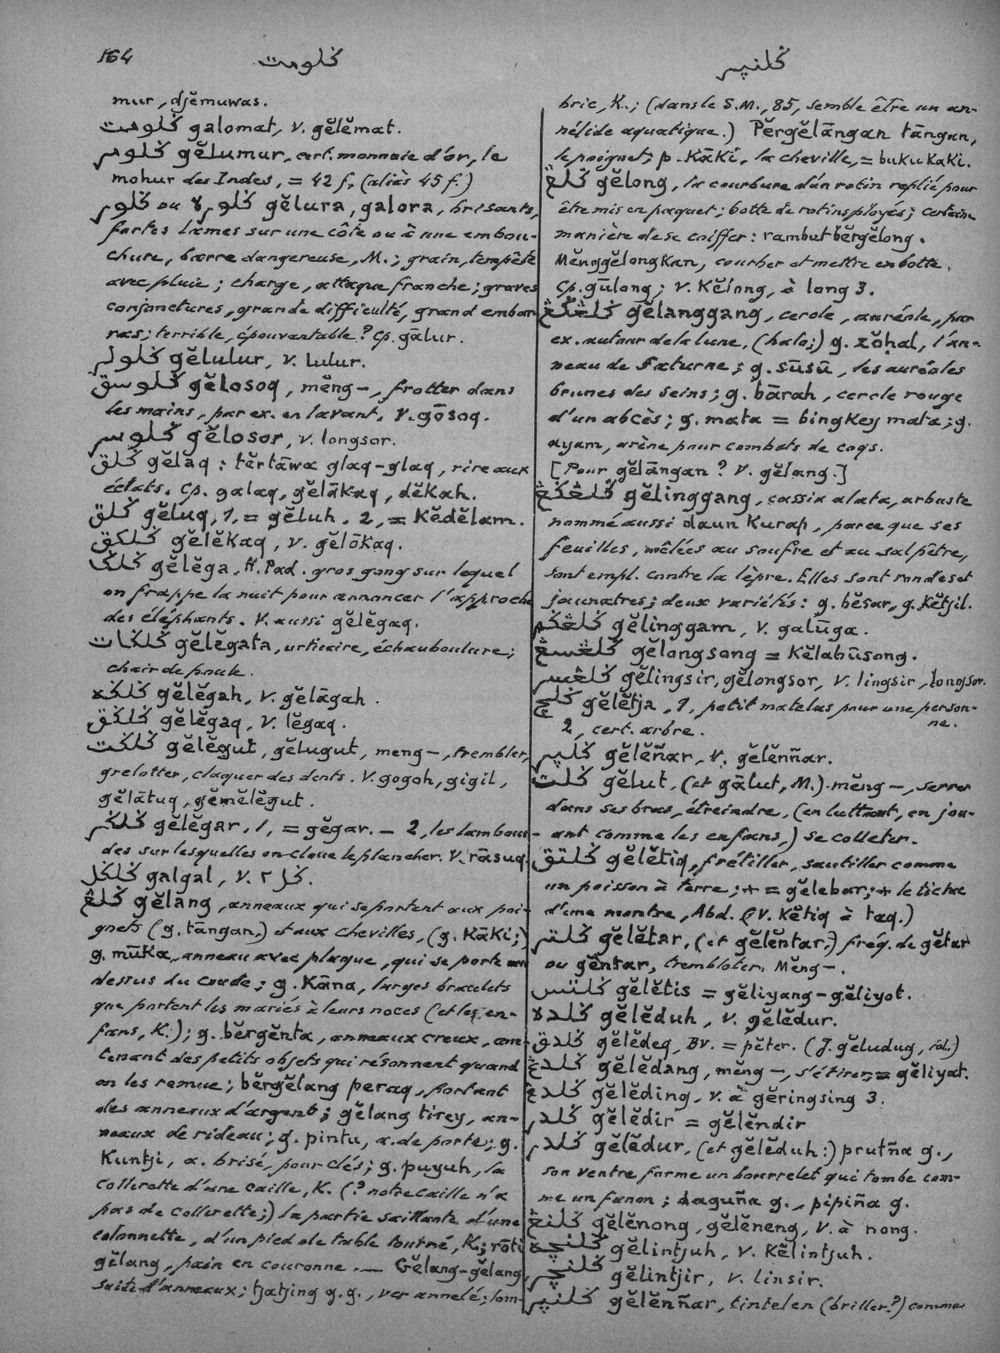 164
ڬلومت
ڬلنڽر
mur, djĕmuwas.
ڬلومت galomat, v. gĕlĕmat.
ڬلومر gĕlumur, cert. monnaie d'or, le
mohur des Indes, = 42 f, (aliàs 45 f.)
ڬلور ou ڬلوره gĕlura, galora, brisants,
fortes lâmes sur une côte ou à une embou-
chure, barre dangereuse, M.; grain, tempête
avec pluie; charge, attaque franche; graves
conjonctures, grande difficulté, grand embar-
ras; terrible, épouvantable? Cp. gālur.
ڬلولر gĕlulur, v. lulur.
ڬلوسق gĕlosoq, mĕng-, frotter dans
les mains, par ex. en lavant. V. gōsoq.
ڬلوسر gĕlosor, v. longsor.
ڬلق gĕlaq: tĕrtāwa glaq-glaq, rire aux
éclats. Cp. galaq, gĕlākaq, dĕkah.
ڬلق gĕluq, 1, = gĕluh. 2, = Kĕdĕlam.
ڬلكق gĕlĕkaq, v. gĕlōkaq.
ڬلڬ gĕlĕga, H. Pad. gros gong sur lequel
on frappe la nuit pour annoncer l'approche
des éléphants. V. aussi gĕlĕgaq.
ڬلڬات gĕlĕgata, urticaire, échauboulure;
chair de poule.
ڬلڬه gĕlĕgah, v. gĕlāgah.
ڬلڬق gĕlĕgaq, v. lĕgaq.
ڬلڬت gĕlĕgut, gĕlugut, meng-, trembler,
grelotter, claquer des dents. V. gogoh, gigil,
gĕlātuq, gĕmĕlĕgut.
ڬلڬر gĕlĕgar, 1, = gĕgar. - 2, les lambour-
des sur lesquelles on cloue le plancher. V. rāsuq.
ڬلڬل galgal, v. ڬل ٢.
ڬلڠ gĕlang, anneaux qui se portent aux poi-
gnets (g. tāngan,) et aux chevilles, (g. Kāki;)
g. mūka, anneau avec plaque, qui se porte au
dessus du coude; g. Kāna, larges bracelets
que portent les mariés à leurs noces (et les en-
fans, K.); g. bĕrgĕnta, anneaux creux, con-
tenant des petits objets qui résonnent quand
on les remue; bĕrgĕlang peraq, portant
des anneaux d'argent; gĕlang tirey, an-
neaux de rideau; g. pintu, a. de porte; g.
Kuntji, a. brisé, pour clés; g. puyuh, la
collerette d'une caille, K. (? notre caille n'a
pas de collerette;) la partie saillante d'une
colonnette, d'un pied de table tourné, K.; rōti
gĕlang, pain en couronne. — Gĕlang-gĕlang,
suite d'anneaux; tjatjing g. g., ver annelé; lom-
bric, K.; (dans le S.M., 85, semble être un an-
nélide aquatique.) Pĕrgĕlāngan tāngan,
le poignet; p. Kāki, la cheville, = buku Kaki.
ڬلڠ gĕlong, la courbure d'un rotin replié pour
être mis en paquet; botte de rotins ployés; certaine
manière de se coiffer: rambut bĕrgĕlong.
MĕnggĕlongKan, courber et mettre en botte.
Cp. gūlong; v. Kĕlong, à long 3.
ڬلڠڬڠ gĕlanggang, cercle, auréole, par
ex. autour de la lune, (halo;) g. zŏḥal, l'an-
neau de Saturne; g. sūsū, les auréoles
brunes des seins; g. bārah, cercle rouge
d'un abcès; g. mata = bingkey mata; g.
ayam, arène pour combats de coqs.
[Pour gĕlāngan? V. gĕlang.]
ڬلڠڬڠ gĕlinggang, cassia alata, arbuste
nommé aussi daun Kurap, parce que ses
feuilles, mêlées au soufre et au salpêtre,
sont empl. contre la lèpre. Elles sont rondes et
jaunatres; deux variétés: g. bĕsar, g. Kĕtjil.
ڬلڠڬم gĕlinggam, v. galūga.
ڬلڠسڠ gĕlongsong = Kĕlabūsong.
ڬلڠسر gĕlingsir, gĕlongsor, v. lingsir, longsor.
ڬلچ gĕlĕtja, 1, petit matelas pour une person-
ne.
2, cert. arbre.
ڬلڽر gĕlĕñar, v. gĕlĕnñar.
ڬلت gĕlut, (et gālut, M.) mĕng-, serrer
dans ses bras, étreindre, (en luttant, en jou-
ant comme les enfans,) se colleter.
ڬلتق gĕlĕtiq, frétiller, sautiller comme
un poisson à terre; + = gĕlebar; + le tictac
d'une montre, Abd. (V. Kĕtiq à taq.)
ڬلتر gĕlĕtar, (et gĕlĕntar,) fréq. de gĕtar
ou gĕntar, trembloter. Mĕng-.
ڬلتس gĕlĕtis = gĕliyang-gĕliyot.
ڬلده gĕlĕduh, v. gĕlĕdur.
ڬلدق gĕlĕdeq, Bv. = pĕter. (J. gĕludug, id.)
ڬلدڠ gĕlĕdang, mĕng-, s'étirer, = gĕliyat.
ڬلدڠ gĕlĕding, v. à gĕringsing 3.
ڬلدر gĕlĕdir = gĕlĕndir
ڬلدر gĕlĕdur, (et gĕlĕduh:) prutña g.,
son ventre forme un bourrelet qui tombe com-
me un fanon; daguña g., pipiña g.
ڬلنڠ gĕlĕnong, gĕlĕneng, v. à nong.
ڬلنچه gĕlintjuh, v. Kĕlintjuh.
ڬلنچر gĕlintjir, v. linsir.
ڬلنڽر gĕlĕnñar, tintelen (briller?) comme